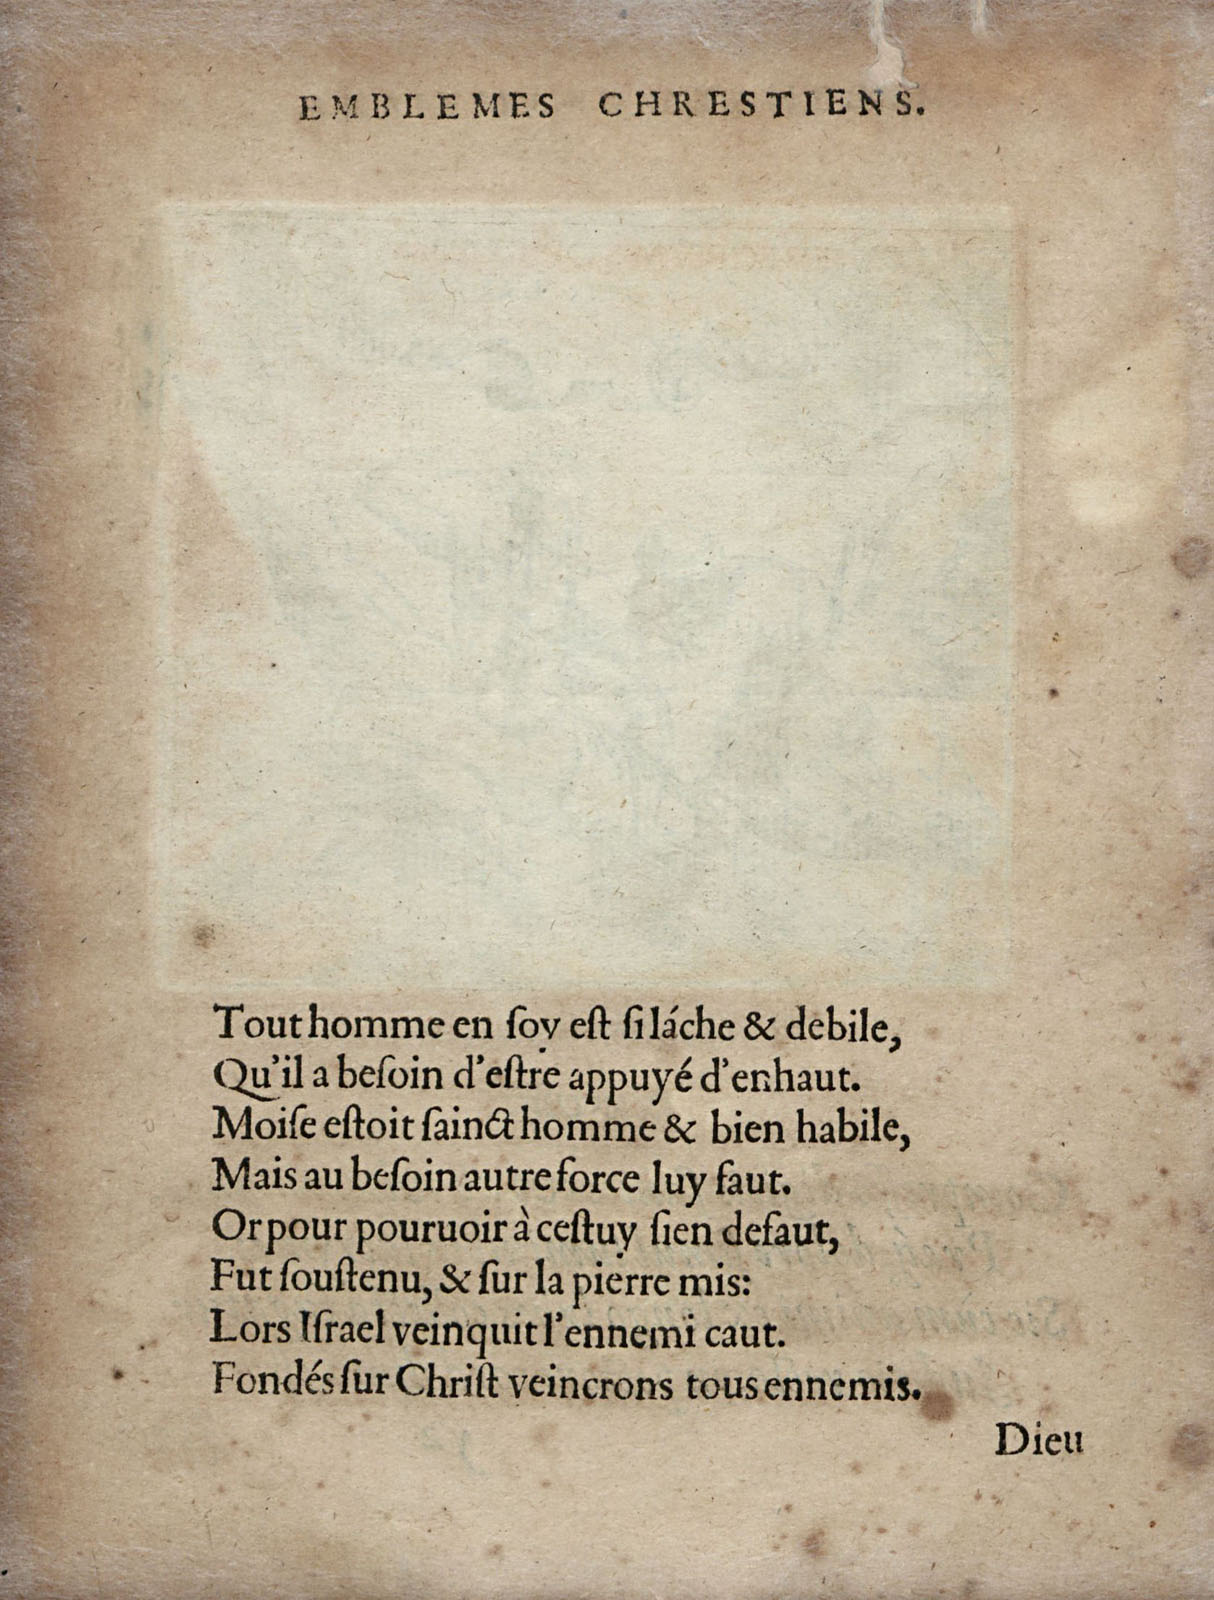 EMBLEMES CHRESTIENS.
Tout homme en ſoy eſt ſi láche & debile,
Qu'il a beſoin d'eſtre appuyé d'enhaut.
Moiſe eſtoit ſainct homme & bien habile,
Mais au beſoin autre force luy faut.
Or pour pouruoir à ceſtuy ſien defaut,
Fut ſouſtenu, & ſur la pierre mis:
Lors Iſrael veinquit l'ennemi caut.
Fondés ſur Chriſt veincrons tous ennemis.
Dieu